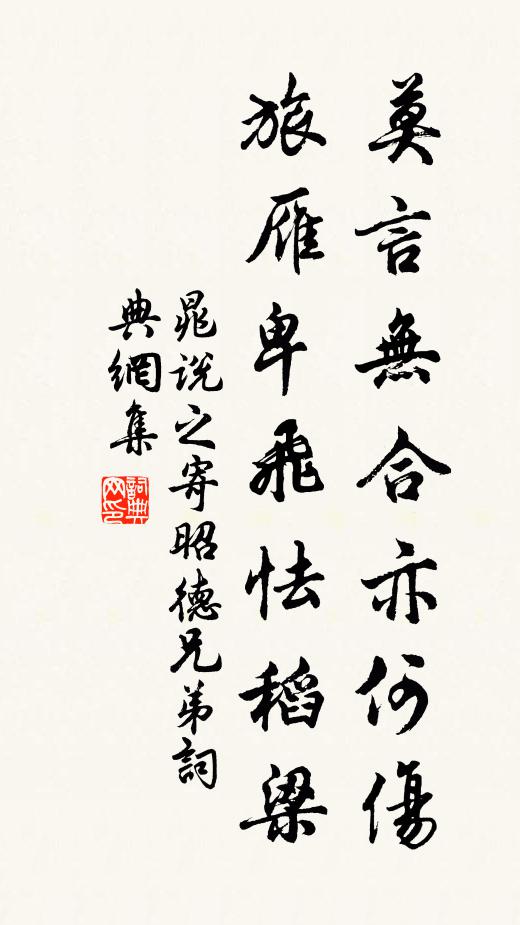 莫言無合亦何傷
旅雁卑飛怯稻梁
晁說之寄昭德兄弟詞
典網集
詞典网印